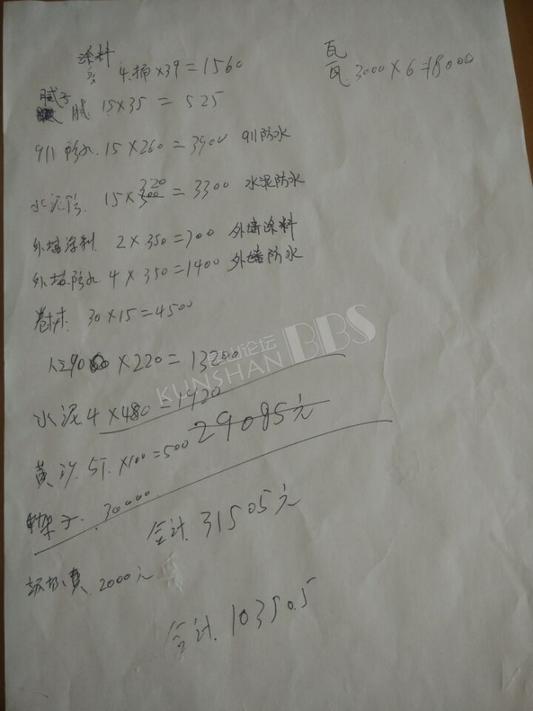 涂料
4桶×39=1560
瓦
瓦 3000×6=18000
腻子
15×35=525
911防水 15×260=3900 911防水
320
水泥防 15×300=3300 水泥防水
外墙涂料 2×350=700 外墙涂料
外墙防水 4×350=1400 外墙防水
卷材 30×15=4500
人工90 ×220=13200
水泥4×480=1920
29085元
黄沙 5T.×100=500
架子 30000
合计 31505元
2000元
合计 10350.5
论坛
KUNSHAN BBS